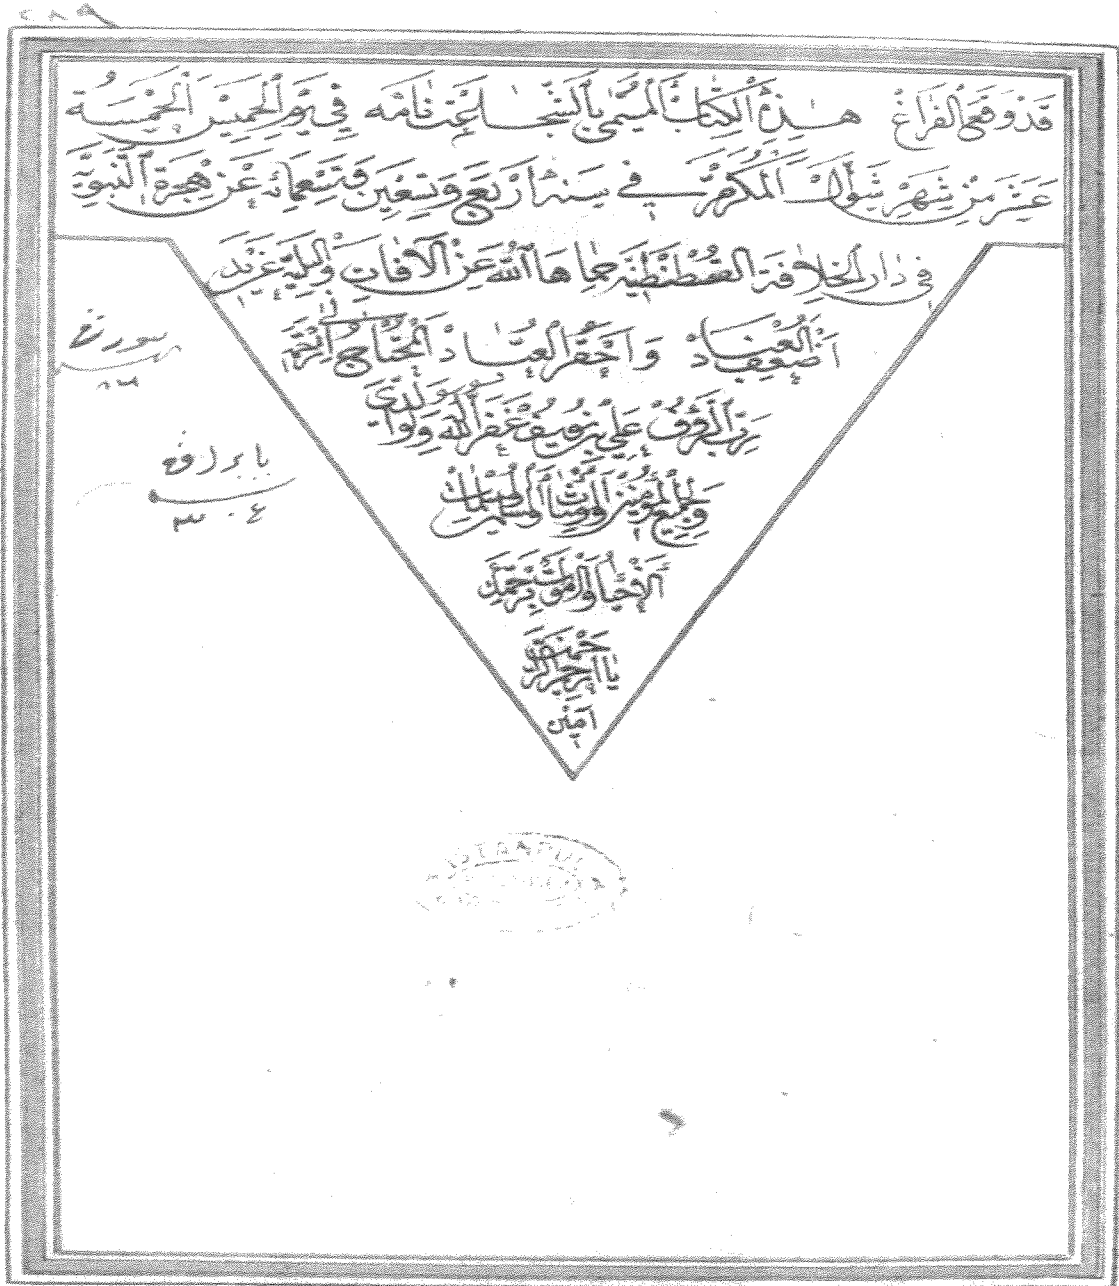 ٢٨٩
قد وقع الفراغ هذه الكتاب المسمى بالشجاعت نامه في يوم الخميس الخمسة
عشر من شهر شوال المكرم في سنه اربع وتسعين وتسعمائه عن هجرة النبوية
في دار الخلافة القسطنطنيه حماها الله عن الآفات والبلية عن يد
اضعف العباد واحقر العباد المحتاج الى رحمة
رب الرؤف علي بن يوسف غفر الله ولوالدى
ولجميع المؤمنين والمؤمنات والمسلمين والمسلمات
الاحيا والاموات برحمتك
يا ارحم الراحمين
آمين
يپراق
٣٠٤